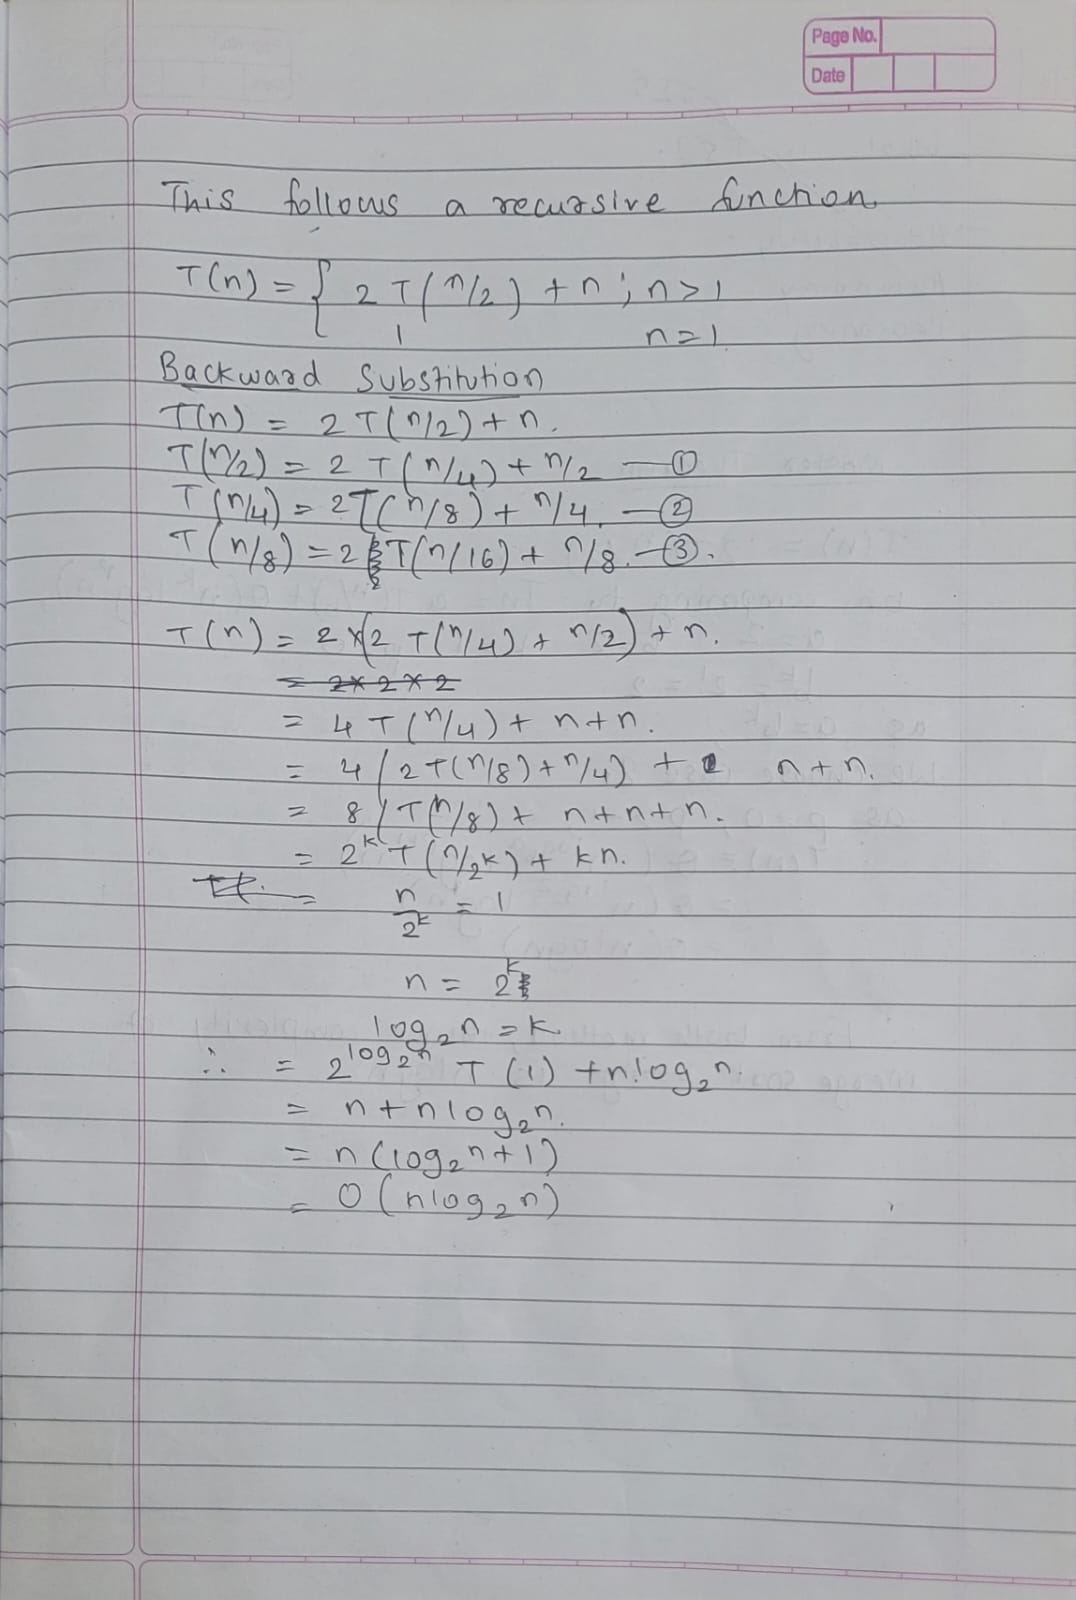 Page No.
Date
This follows a recursive function
T(n) = { 2T(n/2) + n ; n>1
1 n=1
Backward Substitution
T(n) = 2T(n/2) + n.
T(n/2) = 2T(n/4) + n/2 — ①
T(n/4) = 2T(n/8) + n/4. — ②
T(n/8) = 2T(n/16) + n/8. — ③.
T(n) = 2×(2T(n/4) + n/2) + n.
= 2×2×2
= 4T(n/4) + n+n.
= 4(2T(n/8) + n/4) + n+n.
= 8T(n/8) + n+n+n.
= 2^k T(n/2^k) + kn.
= n/2^k = 1
n = 2^k
log₂n = k
∴ = 2^log₂n T(1) + n.log₂n.
= n + nlog₂n.
= n(log₂n+1)
= O(nlog₂n)